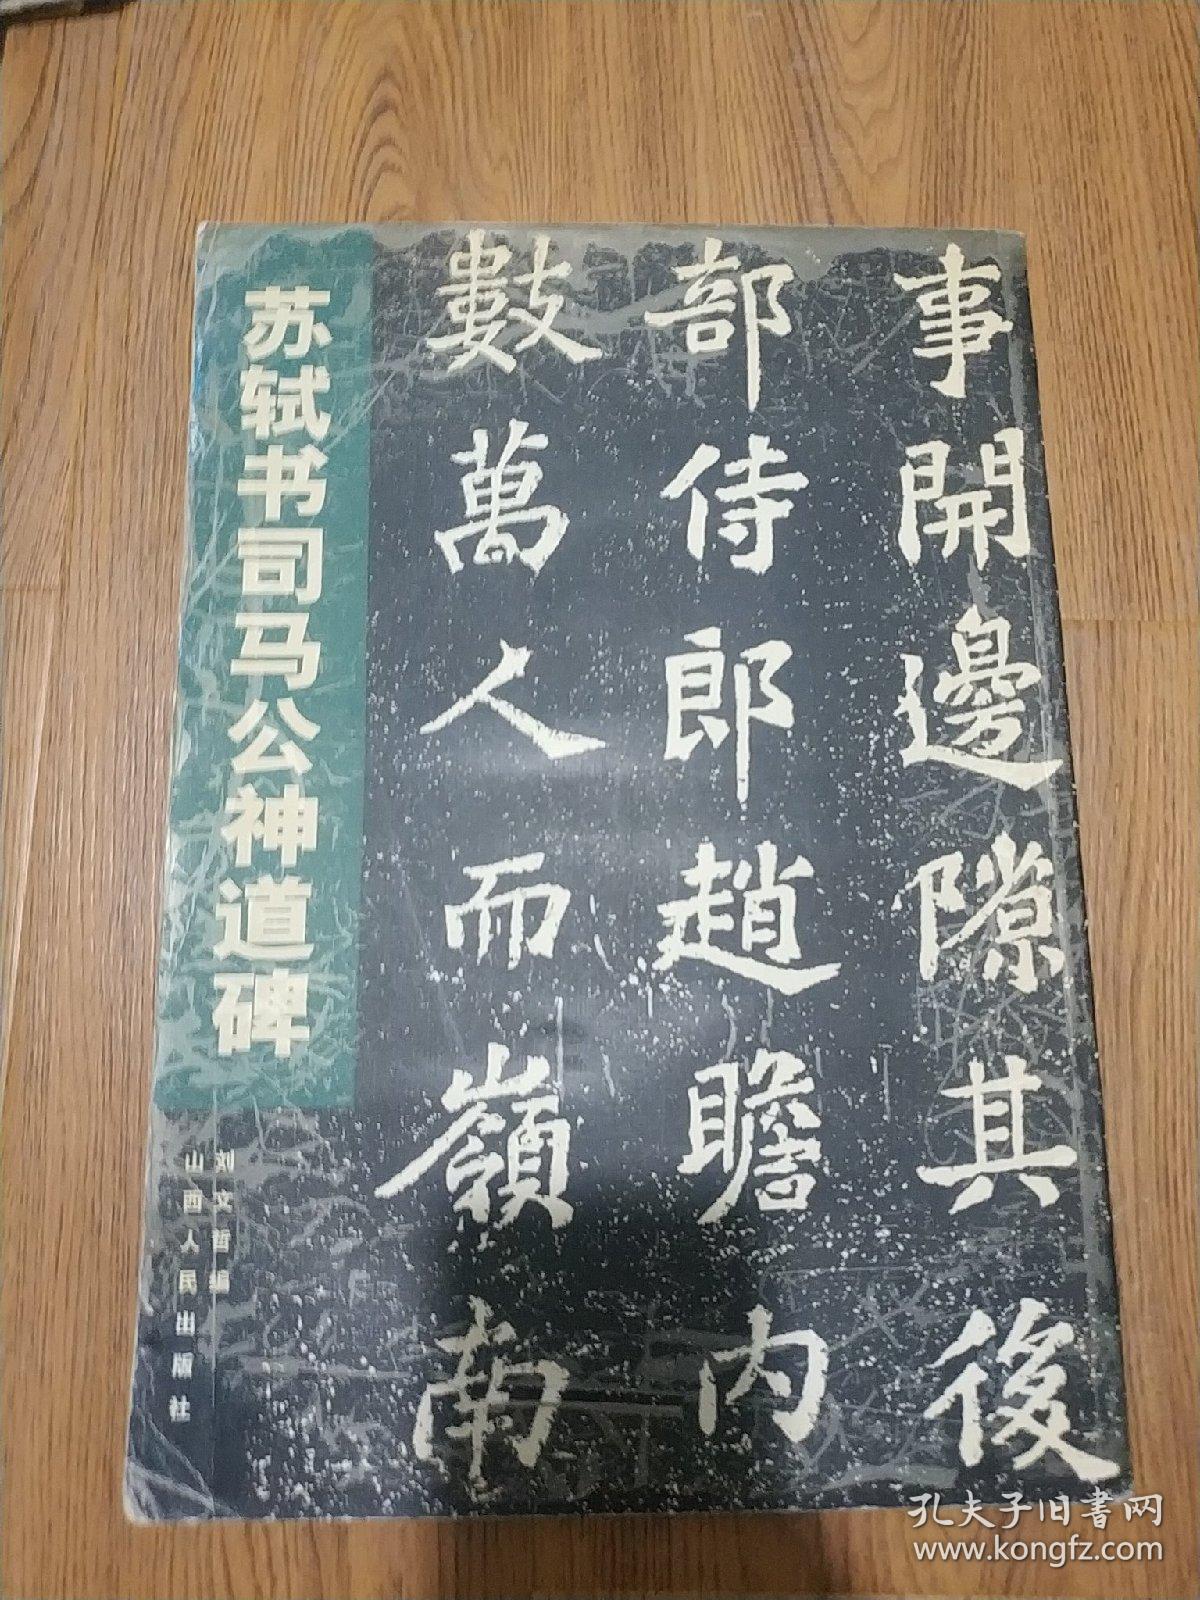 苏轼书司马公神道碑
刘文哲编
山西人民出版社
事開邊隙其後
部侍郎趙瞻内
數萬人而嶺南
孔夫子旧書网
www.kongfz.com